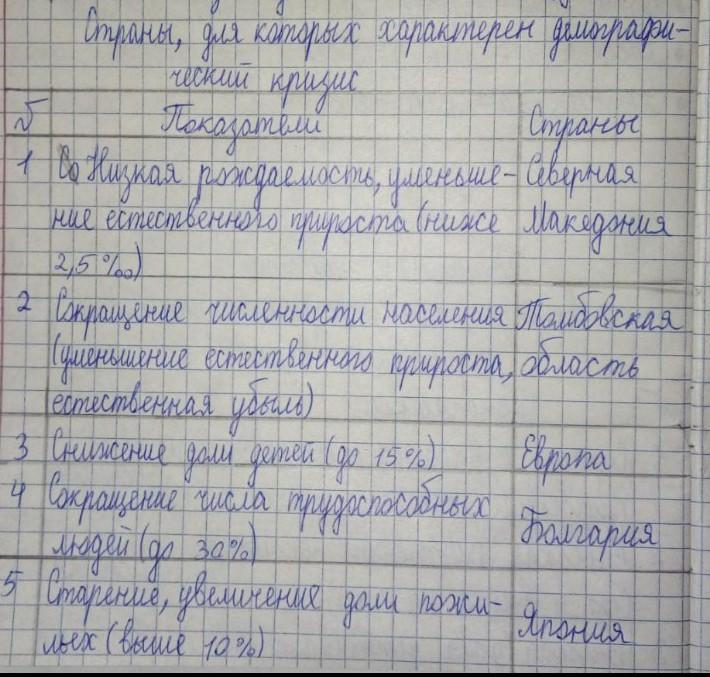 Страны, для которых характерен демографи-
ческий кризис
Показатели Страны
1 Низкая рождаемость, уменьше- Северная
ние естественного прироста (ниже Македония
2,5‰)
2 Сокращение численности населения Томбовская
(уменьшение естественного прироста, область
естественная убыль)
3 Снижение доли детей (до 15%) Европа
4 Сокращение числа трудоспособных
людей (до 30%) Болгария
5 Старение, увеличение доли пожи-
лых (выше 10%) Япония